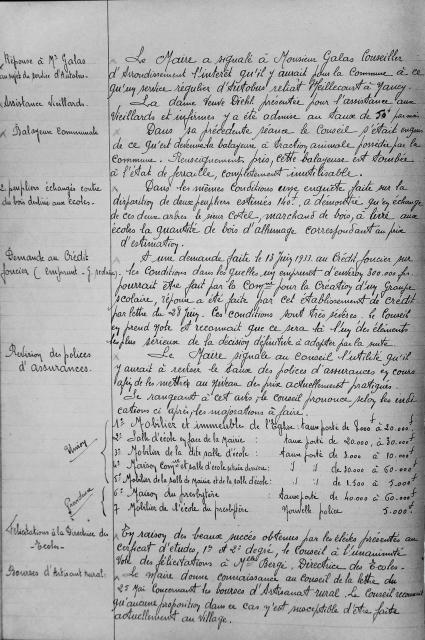 Réponse à Mr Galas
au sujet du service d'Autobus.
Le Maire a signalé à Monsieur Galas Conseiller
d'Arrondissement l'intérêt qu'il y aurait pour la Commune à ce
qu'un service régulier d'Autobus reliât Heillecourt à Nancy.
Assistance Vieillards.
La dame Veuve présentée pour l'assistance aux
Vieillards et infirmes y a été admise au taux de par mois.
Balayeuse Communale
Dans sa précédente séance le Conseil s'était enquis
de ce qu'est devenue la balayeuse à traction animale possédée par la
Commune. Renseignements pris, cette balayeuse est tombée
à l'état de ferraille, complètement inutilisable.
2 peupliers échangés contre
du bois destiné aux écoles.
Dans les mêmes conditions une enquête faite sur la
disparition de deux peupliers estimés 140f, a démontré qu'en échange
de ces deux arbres le sieur Cotel, marchand de bois, a livré aux
écoles la quantité de bois d'allumage correspondant au prix
d'estimation.
Demande au Crédit
foncier (emprunt
A une demande faite le 13 Juin 1933 au Crédit foncier sur
les conditions dans lesquelles un emprunt d'environ 300.000 frs
pourrait être fait par la Comne pour la Création d'un Groupe
scolaire, réponse a été faite par cet établissement de crédit
par lettre du 28 Juin. Ces conditions sont très sévères. Le Conseil
en prend note et reconnait que ce sera là l'un des éléments
les plus sérieux de la décision définitive à adopter par la suite.
Révision des polices
d'assurances.
Le Maire signale au Conseil l'utilité qu'il
y aurait à reviser le taux des polices d'assurances en cours
afin de les mettre au niveau des prix actuellement pratiqués.
Se rangeant à cet avis le conseil prononce selon les indi
cations ci après les majorations à faire.
1° Mobilier et immeuble de l'Eglise: taux porté de à 20.000f
2° Salle d'école en face de la Mairie : taux porté de 20.000, à 30.000f
3° Mobilier de la dite salle d'école: taux porté de 3.000 à 10.000f
4° Maison Comne et salle d'école : " " de 30.000 à 60.000f
5° Mobilier de la salle de Mairie et de la salle d'école: " " de 1.500 à 5.000f
6° Maison du presbytère : taux porté de 40.000 à 60.000f
7 Mobilier de l'école du presbytère Nouvelle police 5.000f
Félicitations à la Directrice des
Ecoles.
En raison des beaux succès obtenus par les élèves présentés au
certificat d'études, 1er et 2e degré, le Conseil à l'unanimité
vote des félicitations à Melle Bergé, Directrice des Ecoles.
Bourses d'Artisanat rural.
Le Maire donne connaissance au conseil de la lettre du
25 Mai concernant les bourses d'Artisanat rural. Le Conseil reconnait
qu'aucune proposition dans ce cas n'est susceptible d'être faite
actuellement au village.